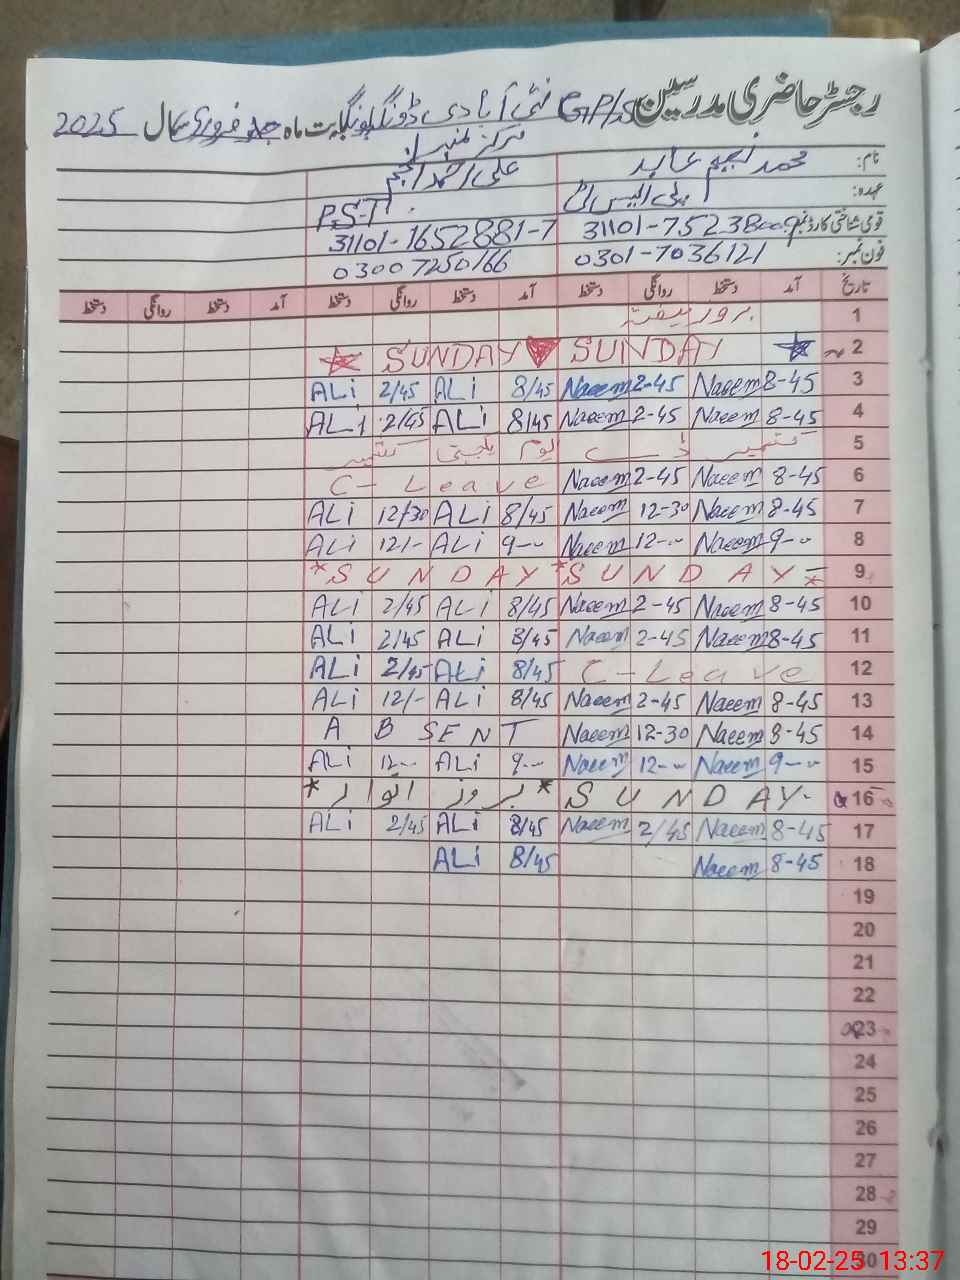 رجسٹر حاضری مدرسین GP/S نئی آبادی ڈونگہ بونگہ بابت ماہ فروری سال 2025
مرکز نمبر
نام: محمد نعیم عابد علی احمد انجم
عہدہ: پی ایس ٹی P.S.T
قومی شناختی کارڈ نمبر 31101-1652881-7
فون نمبر: 0301-7036121 03007250166
تاریخ آمد دستخط روانگی دستخط آمد دستخط روانگی دستخط آمد دستخط روانگی دستخط
1 بروز ہفتہ
2 SUNDAY SUNDAY
3 8-45 Naeem 2-45 Naeem 8/45 ALi 2/45 ALi
4 8-45 Naeem 2-45 Naeem 8/45 ALi 2/45 ALi
5 کشمیر ڈے یوم یکجہتی کشمیر
6 8-45 Naeem 2-45 Naeem C- Leave
7 8-45 Naeem 12-30 Naeem 8/45 ALi 12/30 ALi
8 9-- Naeem 12-- Naeem 9-- ALi 12/- ALi
9 *SUNDAY* *SUNDAY*
10 8-45 Naeem 2-45 Naeem 8/45 ALi 2/45 ALi
11 8-45 Naeem 2-45 Naeem 8/45 ALi 2/45 ALi
12 C-Leave 8/45 ALi 2/45 ALi
13 8-45 Naeem 2-45 Naeem 8/45 ALi 12/- ALi
14 8-45 Naeem 12-30 Naeem ABSENT
15 9-- Naeem 12-- Naeem 9-- ALi 12-- ALi
16 SUNDAY. * بروز اتوار *
17 8-45 Naeem 2/45 Naeem 8/45 ALi 2/45 ALi
18 8-45 Naeem 8/45 ALi
19
20
21
22
23
24
25
26
27
28
29
30
18-02-25 13:37